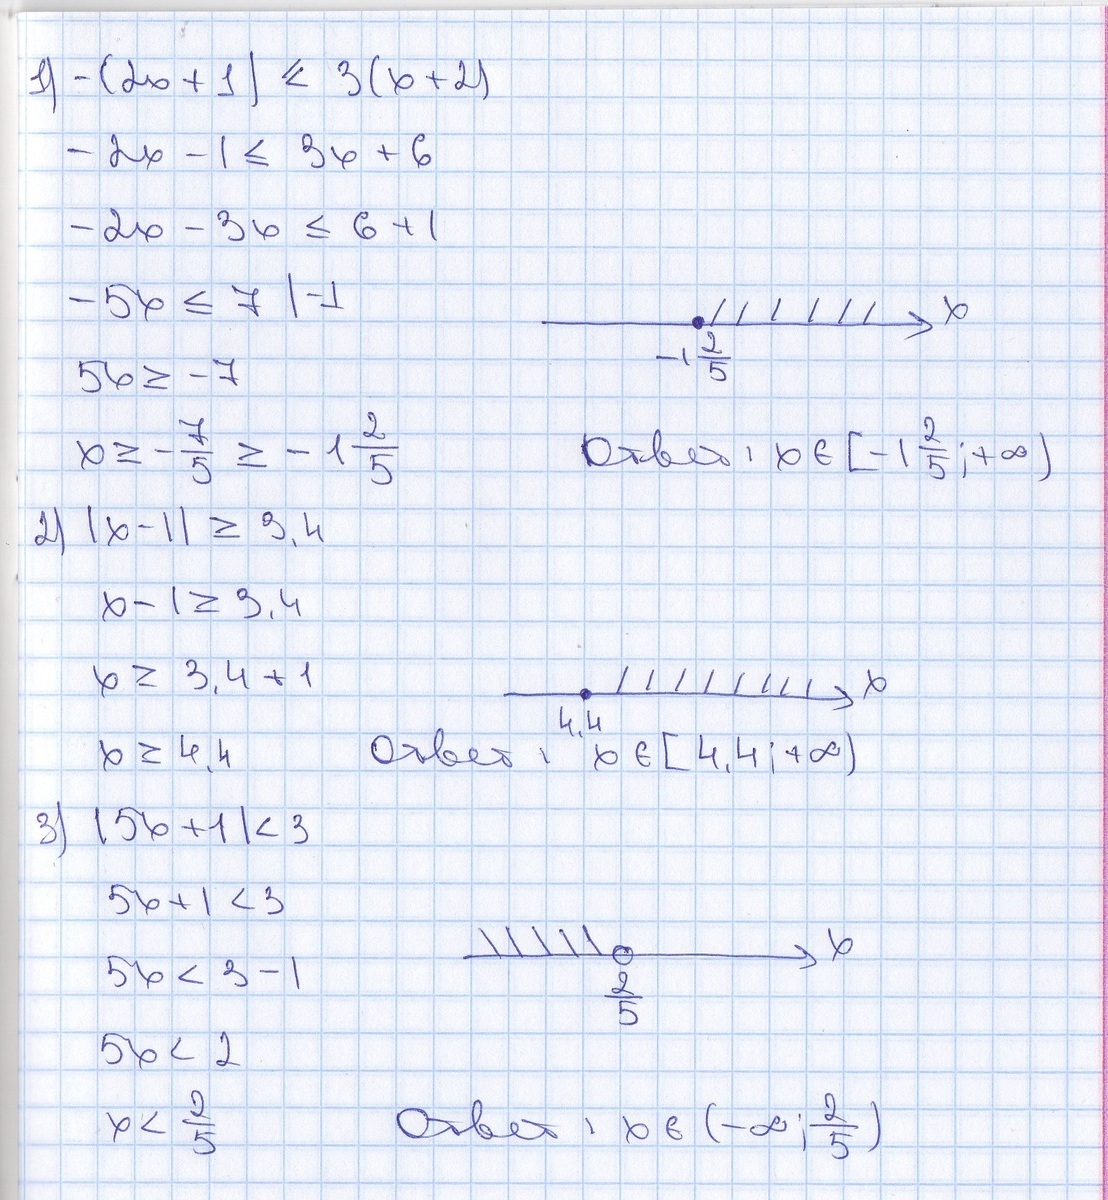 1) -(2x+1) ≤ 3(x+2)
-2x-1 ≤ 3x+6
-2x-3x ≤ 6+1
-5x ≤ 7 |-1
5x ≥ -7
x ≥ -7/5 ≥ -1 2/5
x
-1 2/5
Ответ: x∈[-1 2/5;+∞)
2) |x-1| ≥ 3,4
x-1 ≥ 3,4
x ≥ 3,4+1
x ≥ 4,4
x
4,4
Ответ: x∈[4,4;+∞)
3) |5x+1|<3
5x+1<3
5x<3-1
5x<2
x<2/5
x
2/5
Ответ: x∈(-∞;2/5)